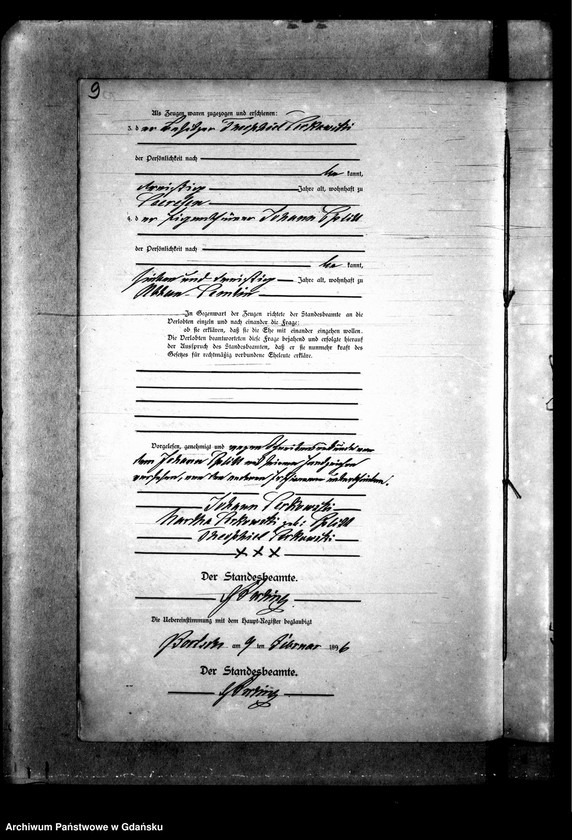 9
Als Zeugen waren zugezogen und erschienen:
3. der Besitzer Theophiel Perkowski
der Persönlichkeit nach
be kannt,
dreissig Jahre alt, wohnhaft zu
4. der Eigenthümer Johann
der Persönlichkeit nach
be kannt,
und dreissig Jahre alt, wohnhaft zu
Abbau
In Gegenwart der Zeugen richtete der Standesbeamte an die
Verlobten einzeln und nach einander die Frage:
ob sie erklären, daß sie die Ehe mit einander eingehen wollen.
Die Verlobten beantworteten diese Frage bejahend und erfolgte hierauf
der Ausspruch des Standesbeamten, daß er sie nunmehr kraft des
Gesetzes für rechtmäßig verbundene Eheleute erkläre.
Vorgelesen, genehmigt und wegen Schreibensunkunde von
dem Johann mit seinem Handzeichen
versehen, von den anderen Personen unterschrieben.
Johann Perkowski
Martha Perkowski geb.
Theophiel Perkowski
X X X
Der Standesbeamte.
Die Uebereinstimmung mit dem Haupt-Register beglaubigt
am 9 ten Februar 1896
Der Standesbeamte.
Archiwum Państwowe w Gdańsku